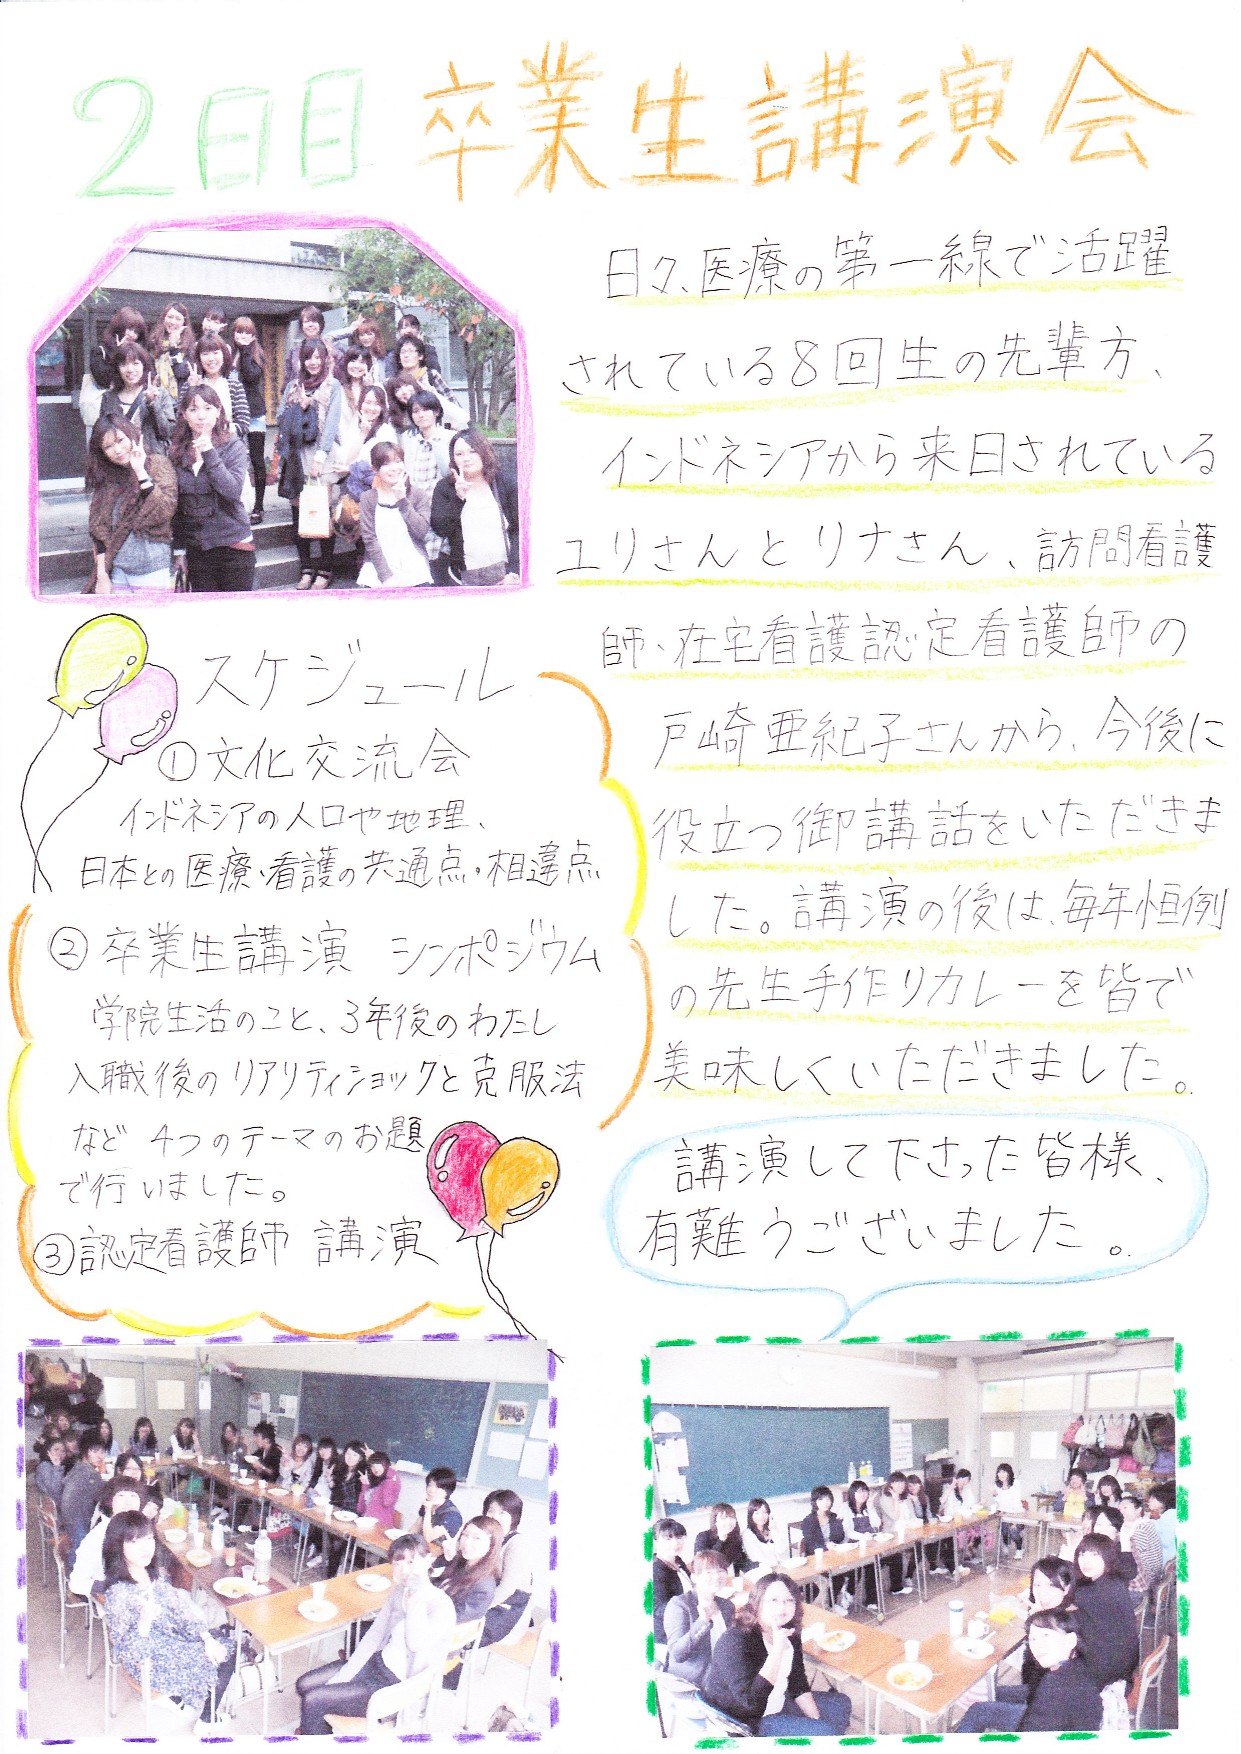 2日目 卒業生講演会
日々、医療の第一線で活躍
されている8回生の先輩方、
インドネシアから来日されている
ユリさんとリナさん、訪問看護
師・在宅看護認定看護師の
戸崎亜紀子さんから、今後に
役立つ御講話をいただきま
した。講演の後は、毎年恒例
の先生手作りカレーを皆で
美味しくいただきました。
スケジュール
①文化交流会
インドネシアの人口や地理、
日本との医療・看護の共通点・相違点
②卒業生講演 シンポジウム
学院生活のこと、3年後のわたし
入職後のリアリティショックと克服法
など 4つのテーマのお題
で行いました。
③認定看護師 講演
講演して下さった皆様、
有難うございました。